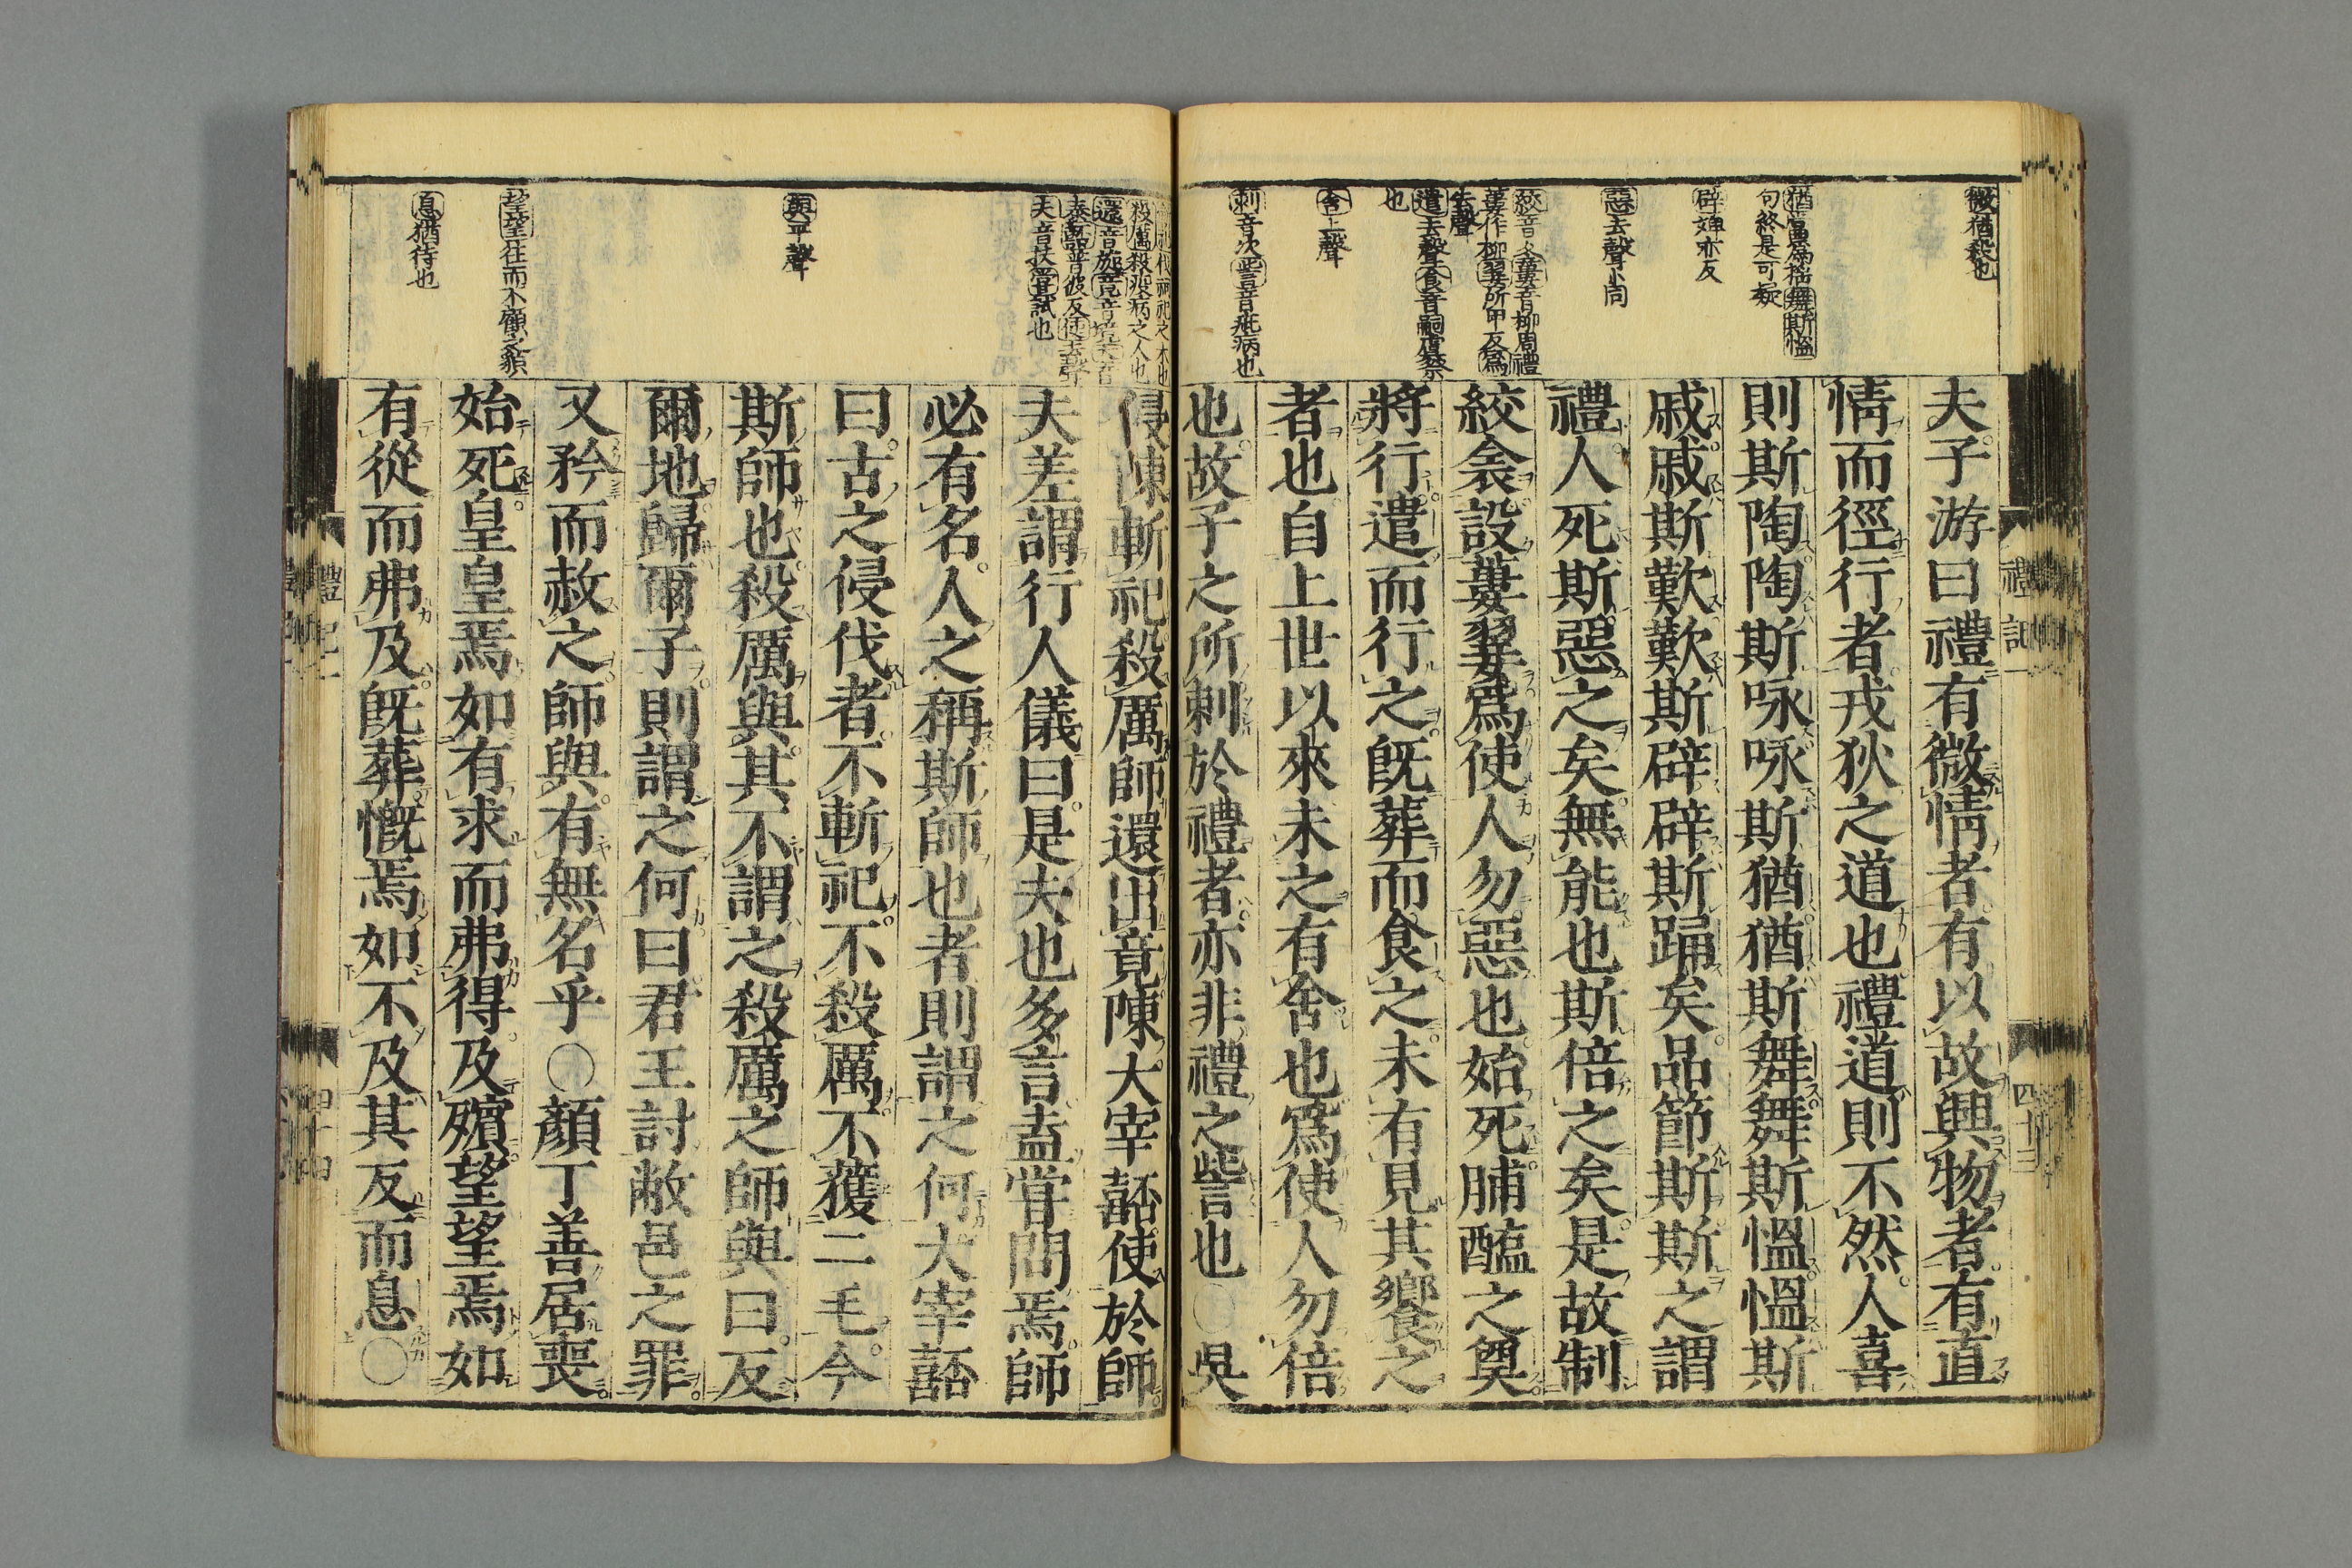 微猶殺也
猶當爲搖舞斯慍
句終是可疑
辟婢亦反
惡去聲小同
絞音爻蔞音柳周禮
蔞作柳翣所甲反爲
去聲
遣去聲食音嗣虞祭
也
舍上聲
刺音次訾音疵病也
夫子游曰禮有微情者有以故興物者有直
情而徑行者戎狄之道也禮道則不然人喜
則斯陶陶斯咏咏斯猶猶斯舞舞斯慍慍斯
戚戚斯歎歎斯辟辟斯踊矣品節斯斯之謂
禮人死斯惡之矣無能也斯倍之矣是故制
絞衾設蔞翣爲使人勿惡也始死脯醢之奠
將行遣而行之既葬而食之未有見其饗之
者也自上世以來未之有舍也爲使人勿倍
也故子之所刺於禮者亦非禮之訾也○吳
禮記一
四十三
殺厲殺疫病之人也
還音旋竟音境
泰嚭普彼反使去聲
夫音扶嘗試也
與平聲
望望往而不顧之貌
息猶待也
侵陳斬祀殺厲師還出竟陳大宰嚭使於師
夫差謂行人儀曰是夫也多言盍嘗問焉師
必有名人之稱斯師也者則謂之何大宰嚭
曰古之侵伐者不斬祀不殺厲不獲二毛今
斯師也殺厲與其不謂之殺厲之師與曰反
爾地歸爾子則謂之何曰君王討敝邑之罪
又矜而赦之師與有無名乎○顏丁善居喪
始死皇皇焉如有求而弗得及殯望望焉如
有從而弗及既葬慨焉如不及其反而息○
禮記一
四十四